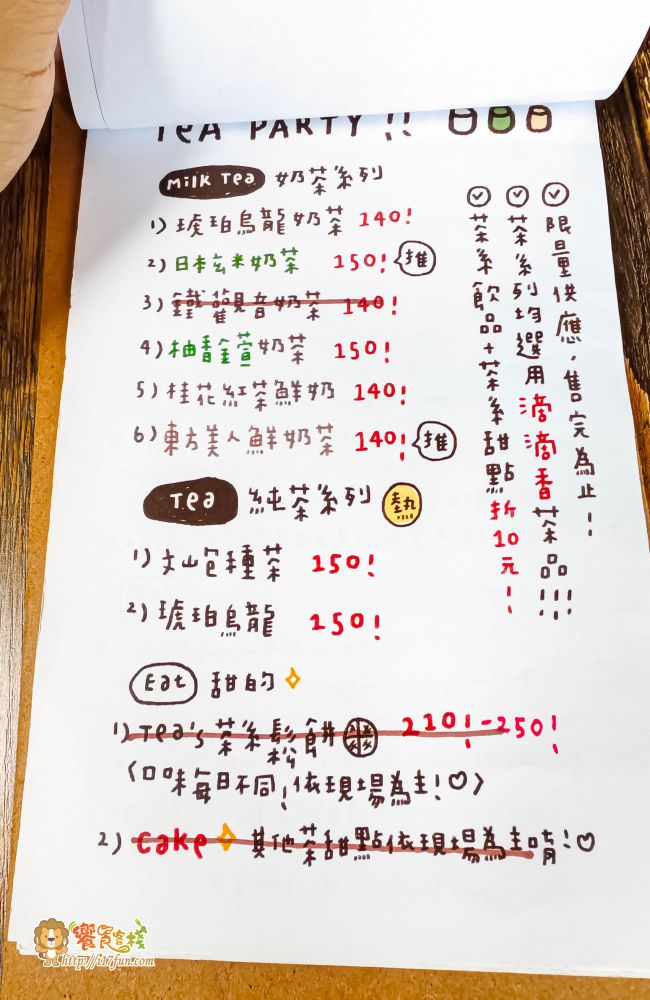 TEA PARTY!!
MilK Tea 奶茶系列
1) 琥珀烏龍奶茶 140!
2) 日本玄米奶茶 150! 推
3) 鐵觀音奶茶 140!
4) 柚香金萱奶茶 150!
5) 桂花紅茶鮮奶 140!
6) 東方美人鮮奶茶 140! 推
限量供應,售完為止!
茶系列均選用滴滴香茶品!!!
茶系飲品+茶系甜點折10元!
Tea 純茶系列 熱
1) 文山包種茶 150!
2) 琥珀烏龍 150!
Eat 甜的
1) Tea's 茶系鬆餅 210!-250!
(口味每日不同,依現場為主!♡)
2) cake 其他茶甜點依現場為主唷!♡
饗賓客棧
http://i17fun.com